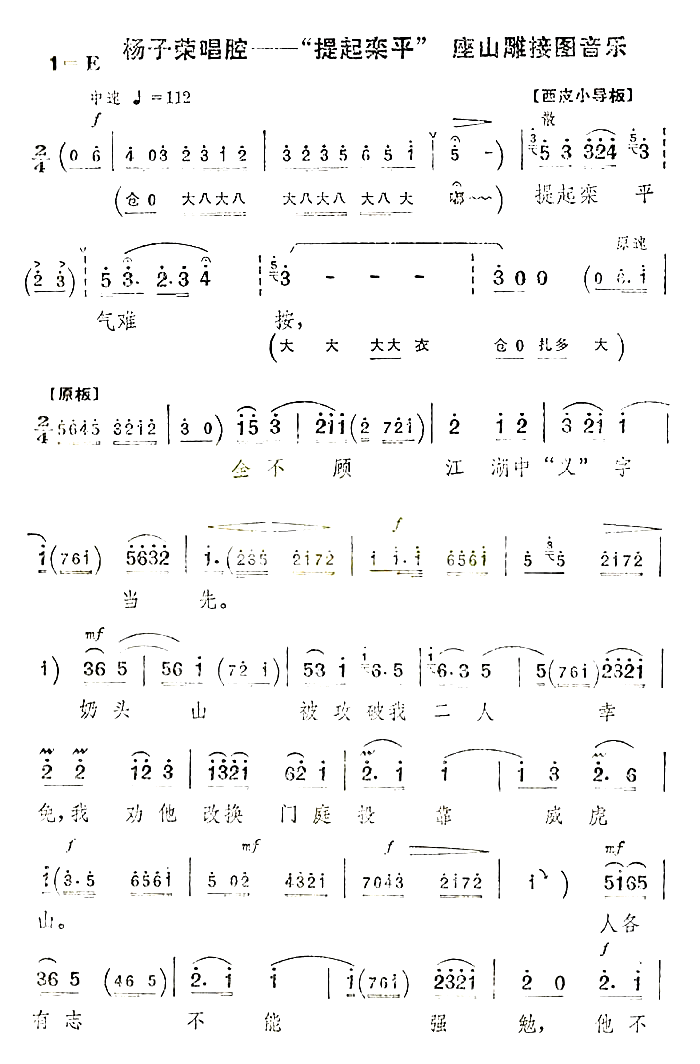 杨子荣唱腔——“提起栾平” 座山雕接图音乐
1=E
中速 ♩=112 【西皮小导板】
f 散
2/4 (0 6 | 4 03 2 3 1 2 | 3 2 3 5 6 5 1 | 5 -) | 5 3 324 3
(仓0 大八大八 大八大八 大八大 嘟~~) 提起栾 平
(2 3) | 5 3. 2.3 4 | 3 - - - | 3 0 0 (0 6.1 |
原速
气难 按,
(大 大 大大 衣 仓0 扎多 大)
【原板】
2/4 5645 3212 | 3 0) 15 3 | 211 (2 721) | 2 12 | 3 21 1 |
全不 顾 江 湖中“义”字
f
1(761) 5632 | 1.(235 2172 | 1 1.1 6561 | 5 5 2172 |
当 先。
mf
1) 36 5 | 56 1 (72 1) | 53 1 6.5 | 6.3 5 | 5(761) 2321 |
奶头 山 被攻 破我 二人 幸
2 2 12 3 | 1321 62 1 | 2. 1 1 | 1 3 2. 6 |
免,我 劝他 改换 门庭 投 靠 威虎
f mf f
1(3.5 6561 | 5 02 4321 | 7043 2172 | 1 ) 5165 |
山。 人各
f
36 5 (46 5) | 2. 1 | 1 (761) 2321 | 2 0 2. 1 |
有志 不 能 强 勉, 他不